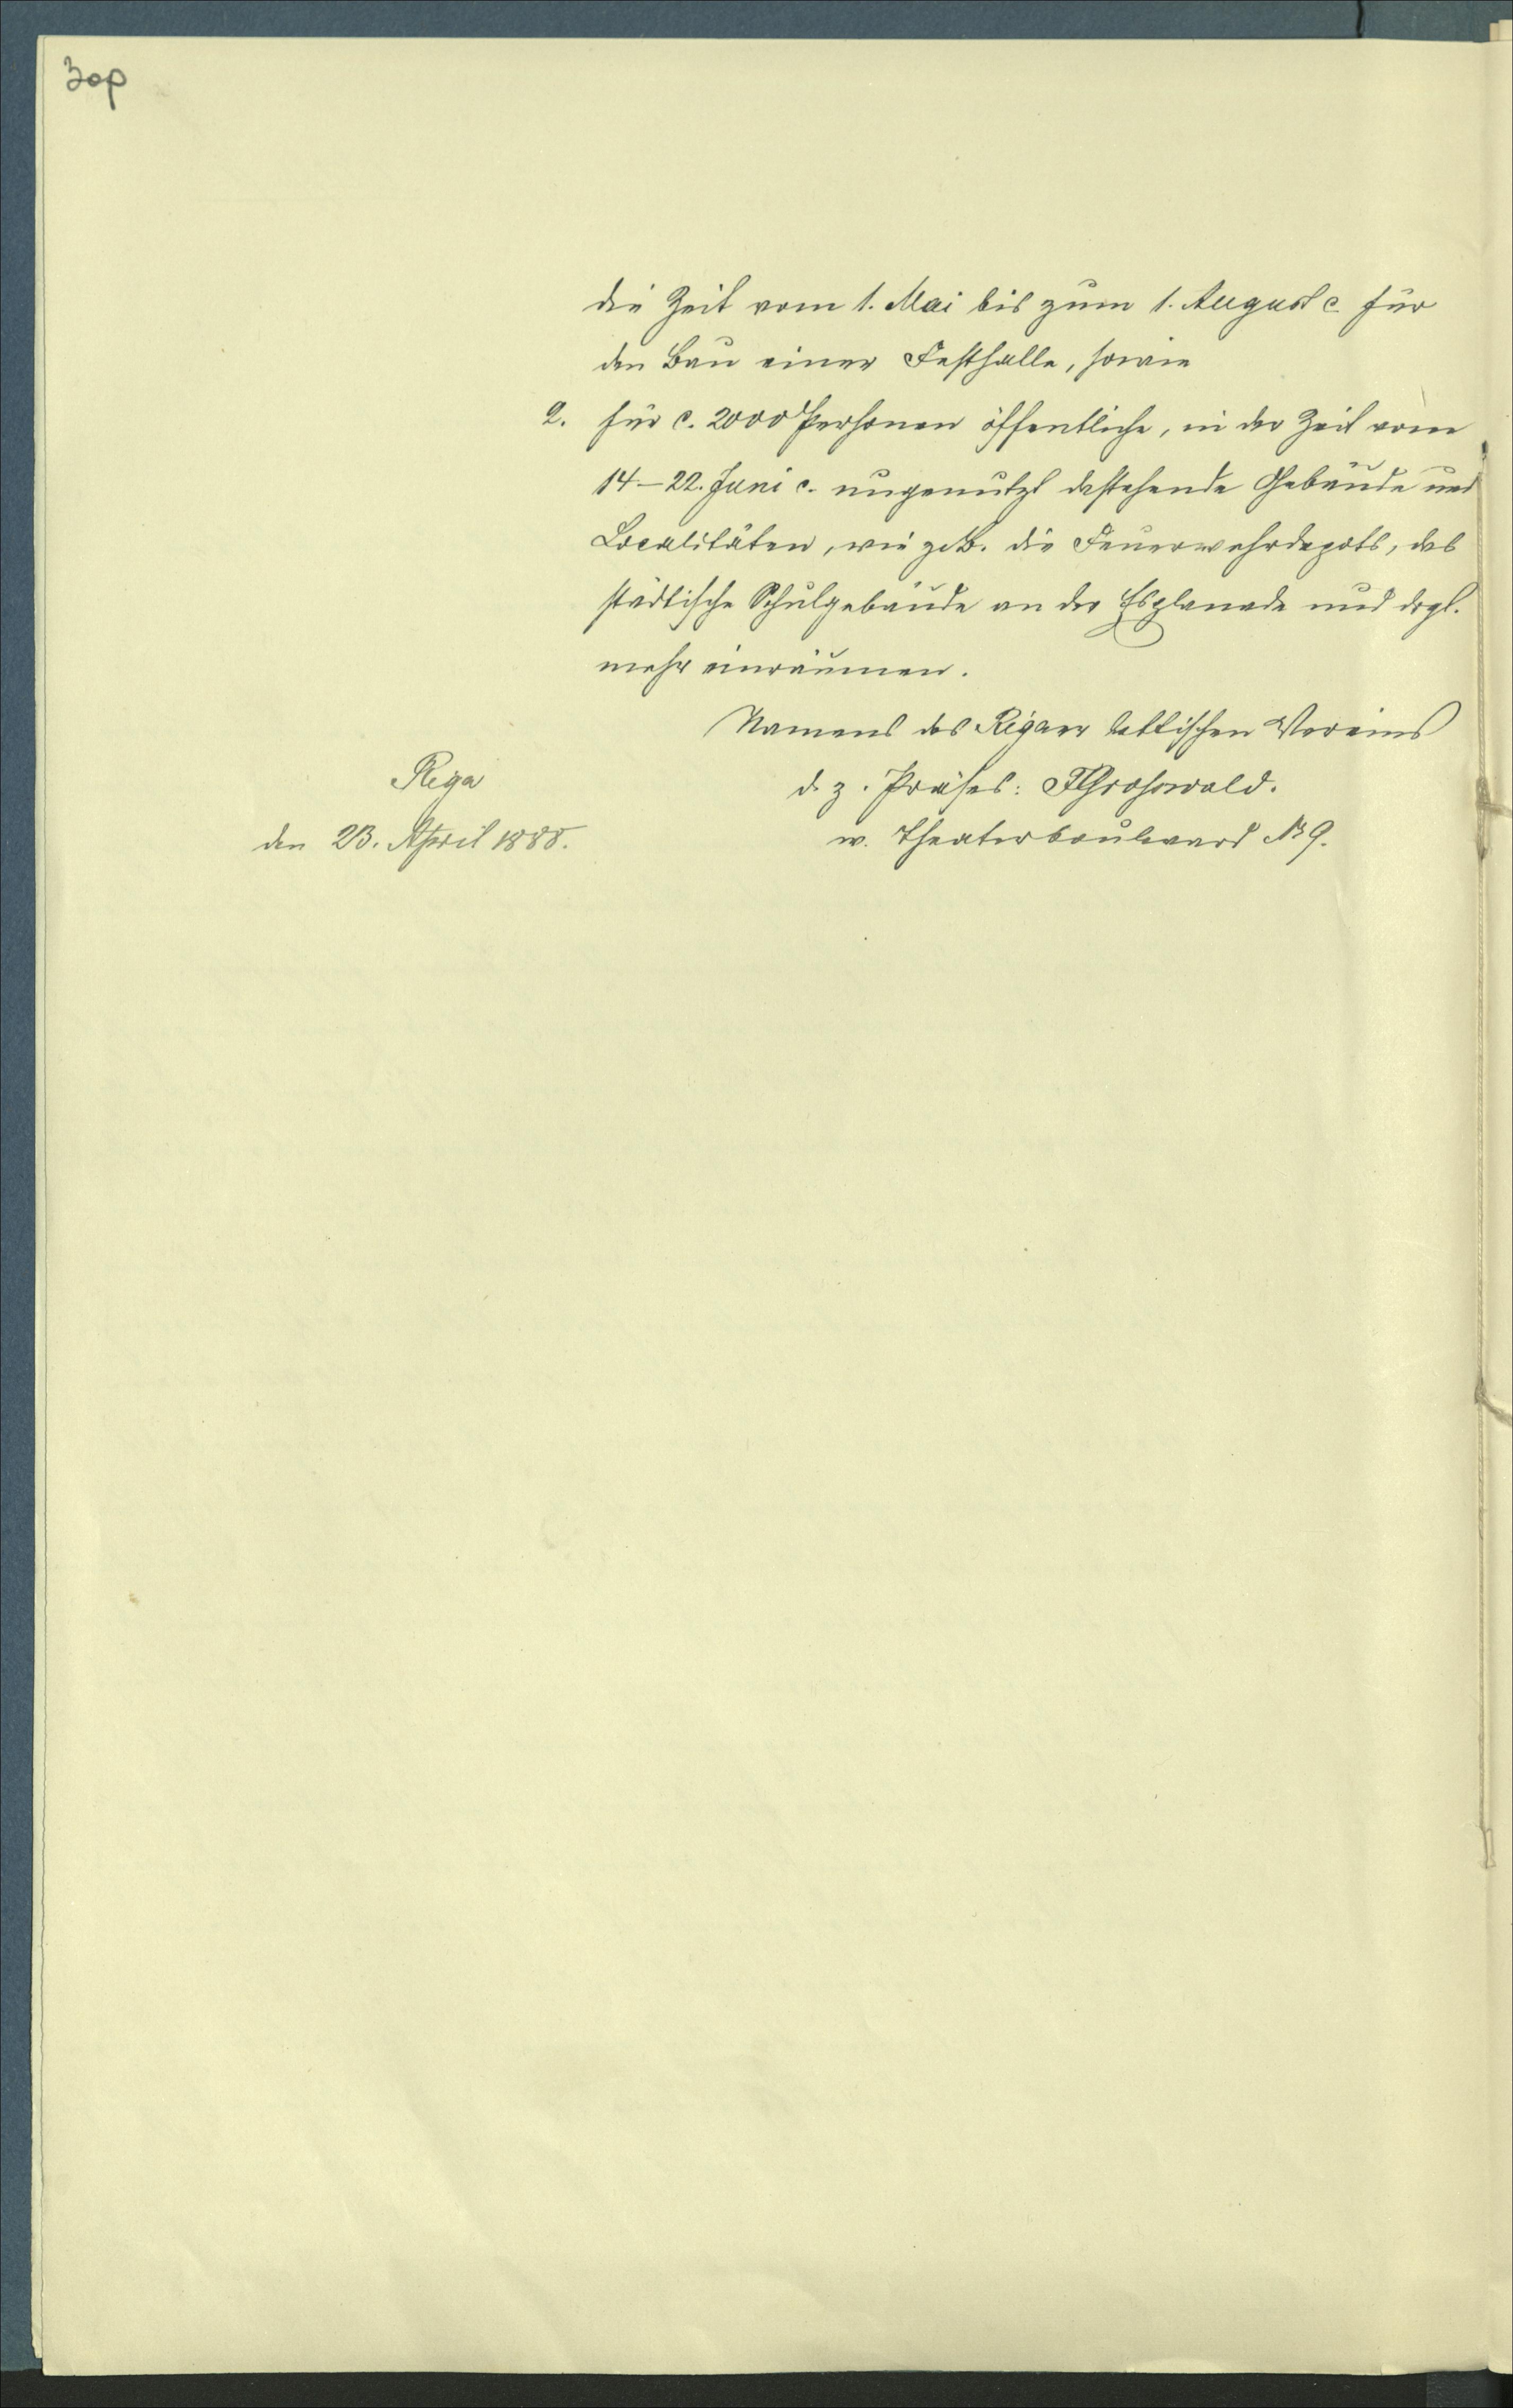 3op
die Zeit vom 1. Mai bis zum 1. August c. für
den Bau einer Festhalle, sowie
2. für c. 2000 Personen öffentliche, in der Zeit vom
14–22. Juni c. ungenutzt dastehende Gebäude und
Localitäten, wie z. B. die Feuerwehrdepots, das
städtische Schulgebäude an der Esplanade und drgl.
mehr einräumen.
Namens des Rigaer lettischen Vereins
d. z. Präses: FGrosswald.
w. Theaterboulevard № 9.
Riga
den 23. April 1888.